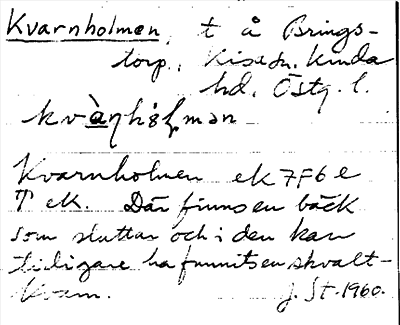 Kvarnholmen, t å Brings-
torp, Kisa sn. Kinda
hd. Östg. l.
kvàɳhɷḷmən
Kvarnholmen ek 7F6e
↑ ek. Där finns en bäck
som sluttar och i den kan
tidigare ha funnits en skvalt-
kvarn. J. St. 1960.